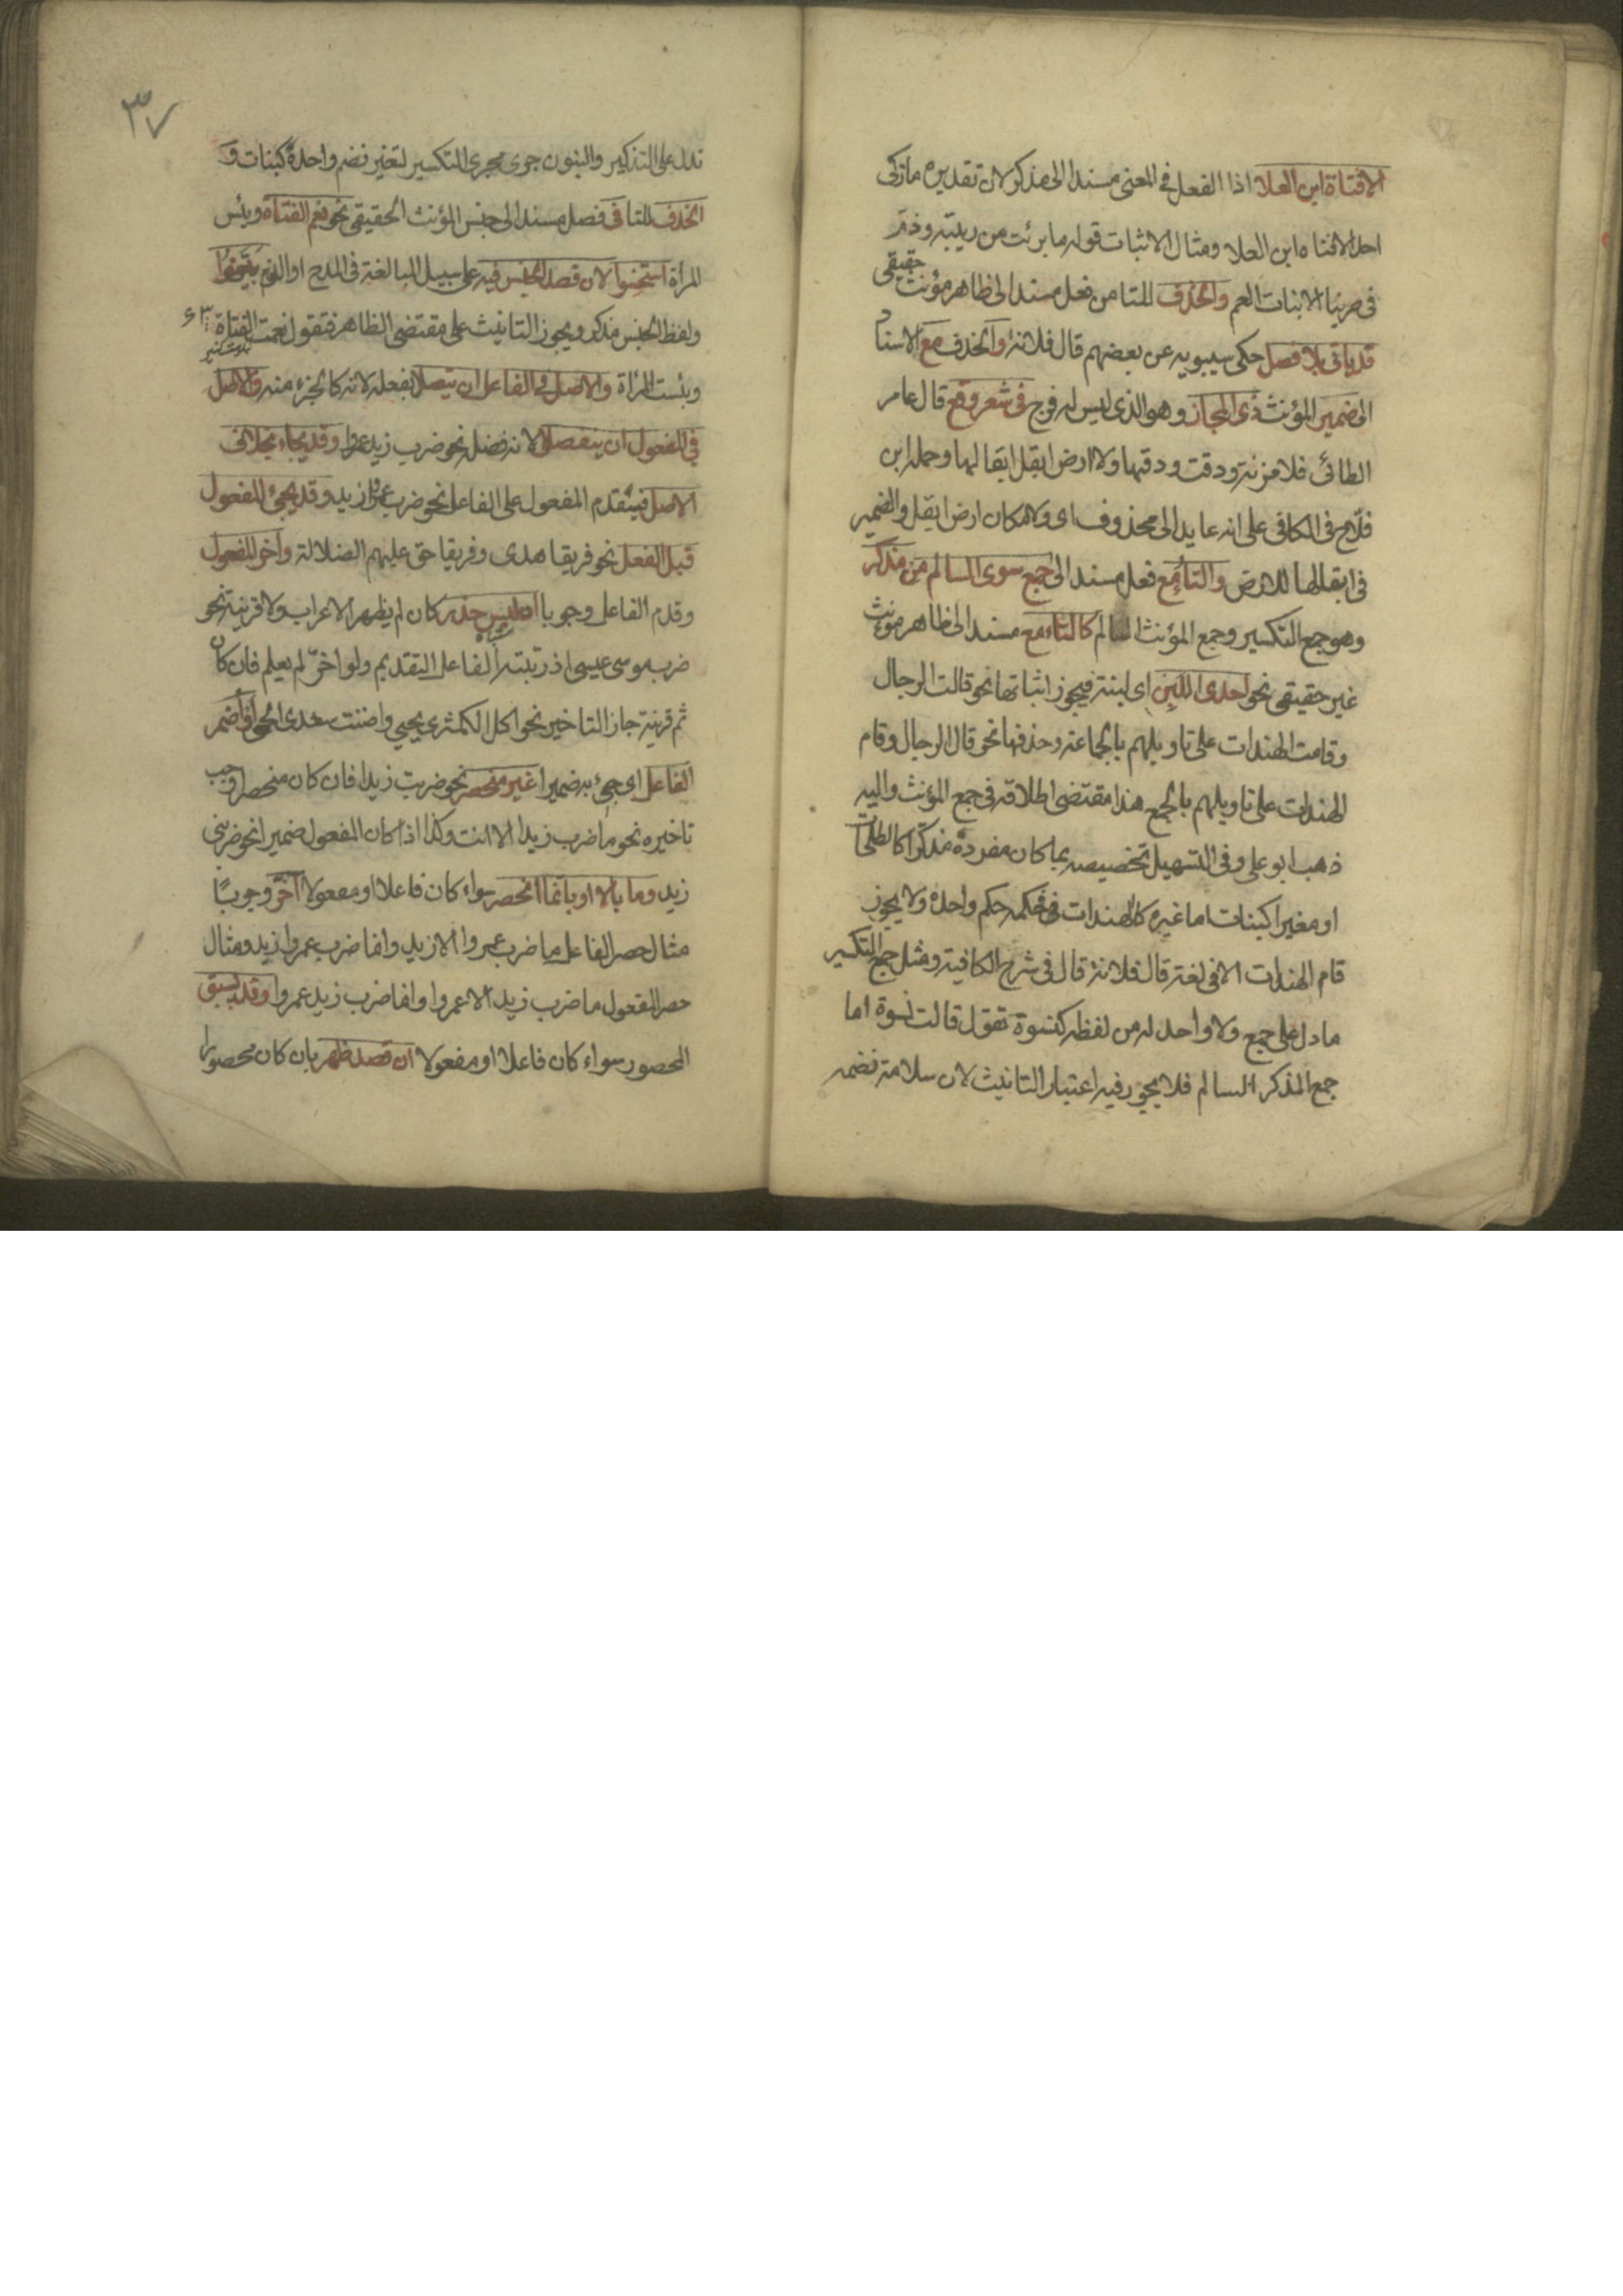 الا فتاة ابن العلا اذا الفعل في المعنى مسندا الى مذكر لان تقديره ما زكى
احد الا فتاه ابن العلا ومثال الاثبات قوله ما برئت من ريبة وذم
في حربنا الا بنات العم والحذف للتا من فعل مسند الى ظاهر مؤنث حقيقى
قد ياتى بلا فصل حكى سيبويه عن بعضهم قال فلانة والحذف مع الاسناد
الى ضمير المؤنث ذى المجاز وهو الذى ليس له فرج في شعر وقع قال عامر
الطائى فلا مزنة ودقت ودقها ولا ارض ابقل ابقالها وحمله ابن
فلاح في الكافى على انه عايد الى محذوف اى ولا مكان ارض ابقل والضمير
في ابقالها للارض والتاء مع فعل مسند الى جمع سوى السالم من مذكر
وهو جمع التكسير وجمع المؤنث السالم كالتاء مع مسند الى ظاهر مؤنث
غير حقيقى نحو احدى اللبن اى لبنة فيجوز اثباتها نحو قالت الرجال
وقامت الهندات على تاويلهم بالجماعة وحذفها نحو قال الرجال وقام
الهندات على تاويلهم بالجمع هذا مقتضى اطلاقه في جمع المؤنث واليه
ذهب ابو على وفى التسهيل تخصيصه بما كان مفرده مذكرا كالطلحات
او مغيرا كبنات اما غيره كالهندات فحكمه حكم واحده ولا يجوز
قام الهندات الا في لغة قال فلانة قال في شرح الكافية ومثل جمع التكسير
ما دل على جمع ولا واحد له من لفظه كنسوة تقول قالت نسوة اما
جمع المذكر السالم فلا يجوز فيه اعتبار التانيث لان سلامة نضمه
تدل على التذكير والبنون جرى مجرى التكسير لتغير نضم واحدة كبنات و
الحذف للتا في فصل مسند الى جنس المؤنث الحقيقى نحو نعم الفتاة وبئس
المرأة استحسنوا لان قصد الجنس فيه على سبيل المبالغة في المدح او الذم
ولفظ الجنس مذكر ويجوز التانيث على مقتضى الظاهر فتقول نعمت الفتاة
وبئست المرأة والاصل في الفاعل ان يتصل بفعله لانه كالجزء منه والاصل
في المفعول ان ينفصل لانه فضلة نحو ضرب زيد عمروا وقد يجاء بخلاف
الاصل فيتقدم المفعول على الفاعل نحو ضرب عمروا زيد وقد يجئ المفعول
قبل الفعل نحو فريقا هدى وفريقا حق عليهم الضلالة وأخر المفعول
وقدم الفاعل وجوبا ان لبس حذر كان لم يظهر الاعراب ولا قرينة نحو
ضرب موسى عيسى اذ رتبة الفاعل التقديم ولو اخر لم يعلم فان كان
ثم قرينة جاز التاخير نحو اكل الكمثرى يحيى واضنت سعدى الحمى او أضمر
الفاعل اى جئ به ضميرا غير منحصر نحو ضربت زيدا فان كان منحصرا وجب
تاخيره نحو ما ضرب زيدا الا انت وكذا اذا كان المفعول ضميرا نحو ضربنى
زيد وما بالا او بانما انحصر سواء كان فاعلا او مفعولا أخر وجوبا
مثال حصر الفاعل ما ضرب عمروا الا زيد وانما ضرب عمروا زيد ومثال
حصر المفعول ما ضرب زيد الا عمروا وانما ضرب زيد عمروا وقد يسبق
المحصور سواء كان فاعلا او مفعولا ان قصد ظهر بان كان محصورا
٣٧